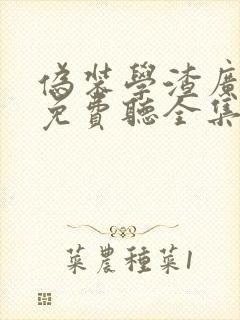 偽裝學渣廣
免費聽全集
菜農種菜1